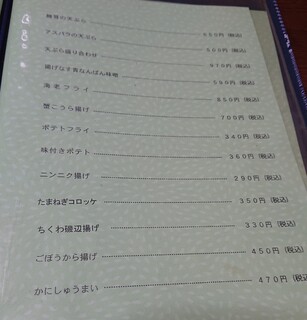 天ぷら 450円(税込)
アスパラの天ぷら 560円(税込)
天ぷら盛り合わせ 870円(税込)
揚げなす肉なんばん味噌 580円(税込)
海老フライ 850円(税込)
蟹こうら揚げ 700円(税込)
ポテトフライ 340円(税込)
味付きポテト 360円(税込)
ニンニク揚げ 290円(税込)
たまねぎコロッケ 350円(税込)
ちくわ磯辺揚げ 330円(税込)
ごぼうから揚げ 450円(税込)
かにしゅうまい 470円(税込)